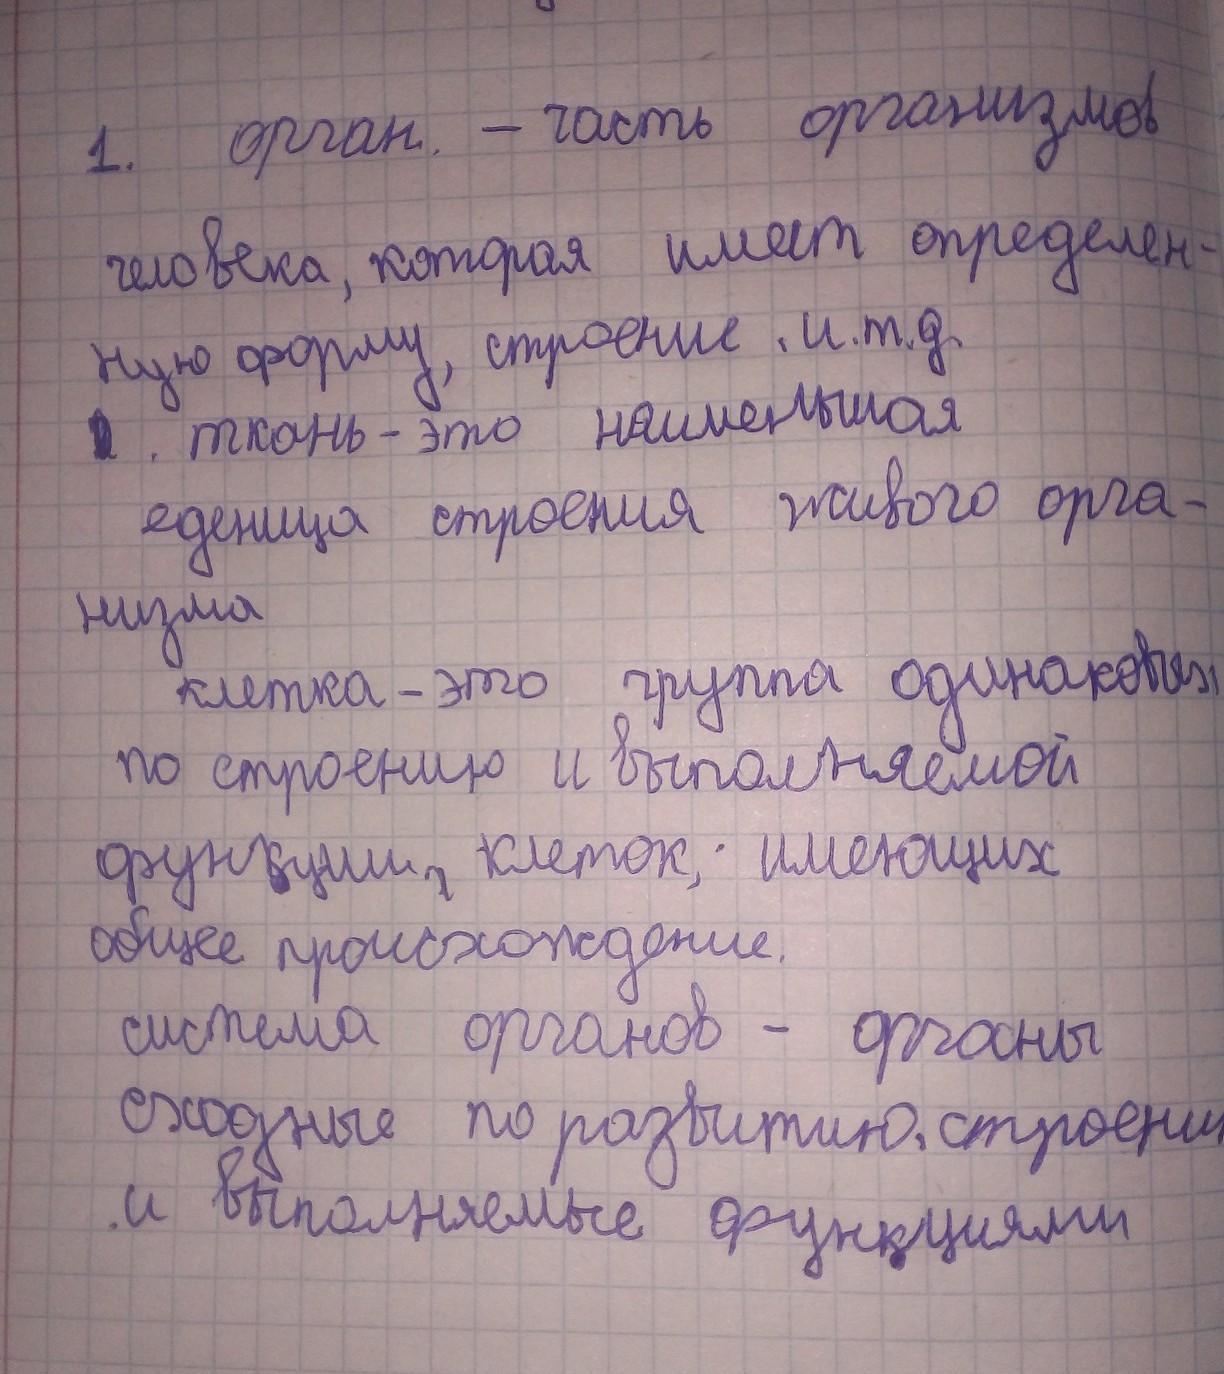 1. орган. – часть организмов
человека, которая имеет определен-
ную форму, строение . и.т.д.
. ткань – это наименьшая
еденица строения живого орга-
низма
клетка – это группа одинаковых
по строению и выполняемой
функции, клеток, имеющих
общее происхождение.
система органов – органы
сходные по развитию, строени
.и выполняемые функциями